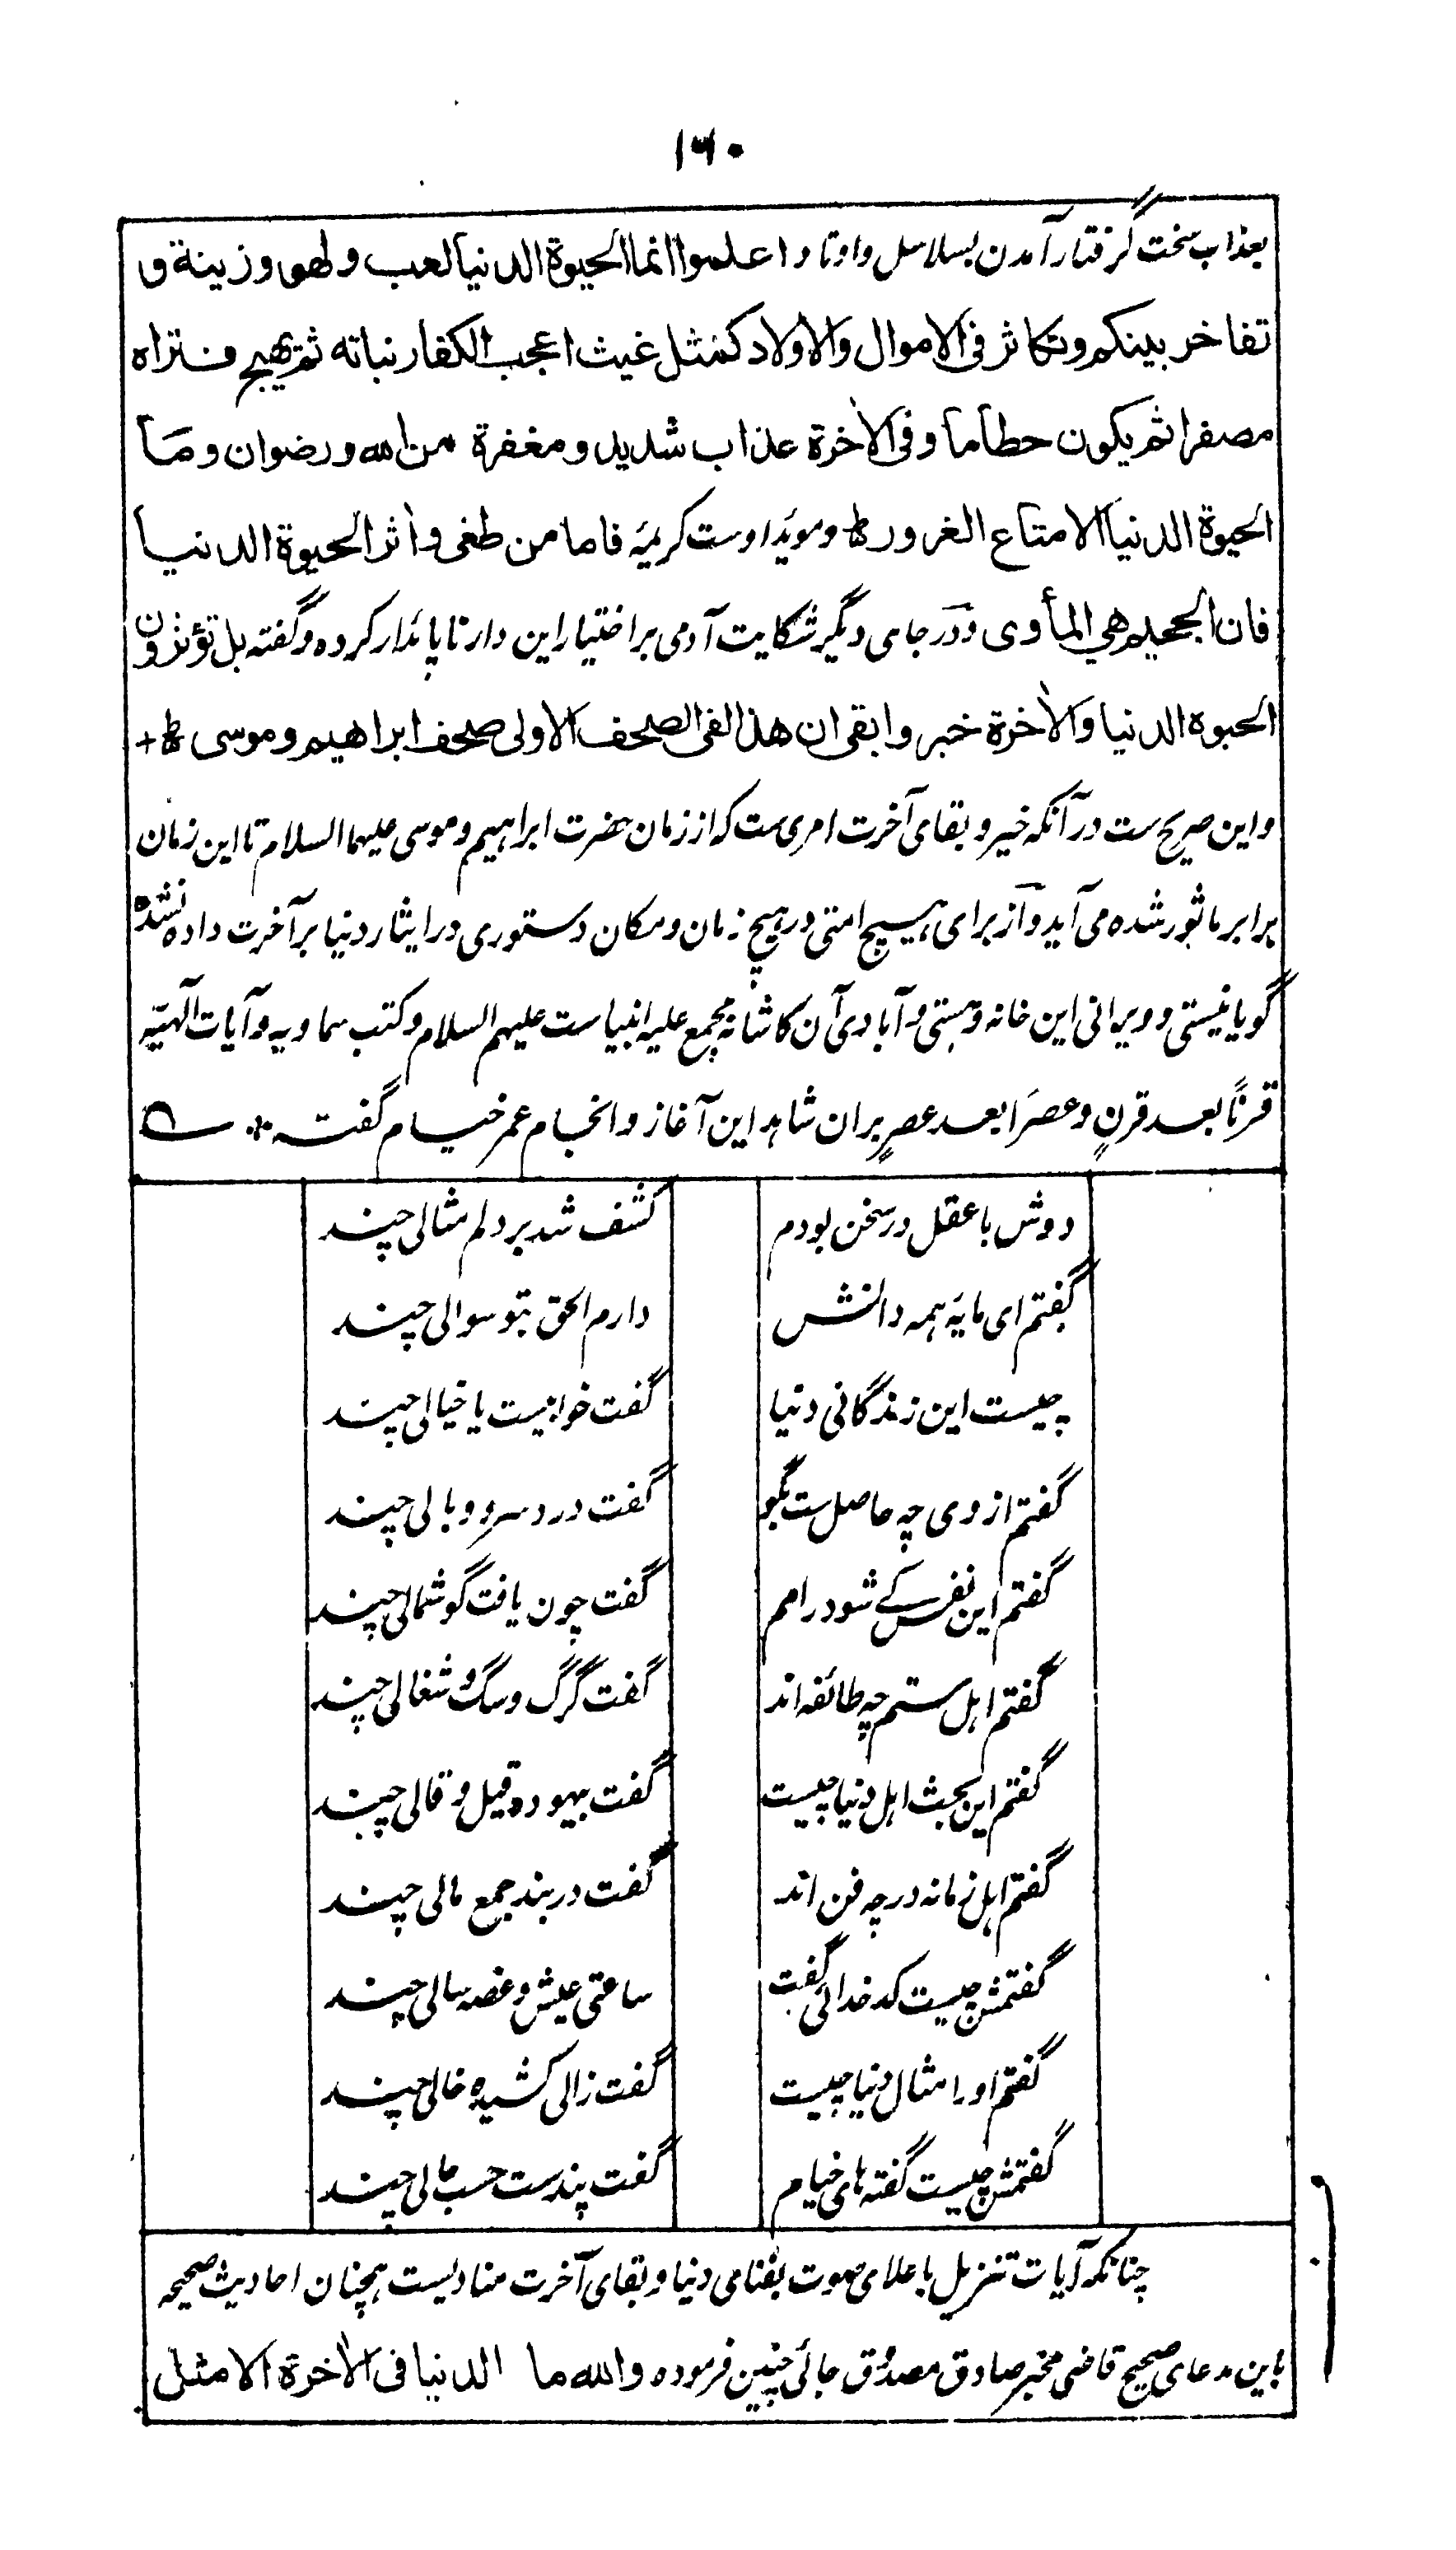 ۱۶۰
بعذاب سخت گرفتار آمدن بسلاسل و اوتاد اعلموا انما الحیوة الدنیا لعب ولهو وزینة و
تفاخر بینکم وتکاثر فی الاموال والاولاد کمثل غیث اعجب الکفار نباته ثم یهیج فتراه
مصفرا ثم یکون حطاما وفی الاخرة عذاب شدید ومغفرة من الله ورضوان وما
الحیوة الدنیا الا متاع الغرور ط وموید اوست کریمۀ فاما من طغی واثر الحیوة الدنیا
فان الجحیم هی المأوی و در جای دیگر شکایت آدمی بر اختیار این دار ناپائدار کرده و گفته بل تؤثرون
الحیوة الدنیا والاخرة خیر وابقی ان هذا لفی الصحف الاولی صحف ابراهیم وموسی ط +
و این صریح ست در آنکه خیر و بقای آخرت امری ست که از زمان حضرت ابراهیم و موسی علیهما السلام تا این زمان
برابر ماثور شده می آید و از برای هیچ امتی در هیچ زمان و مکان دستوری در ایثار دنیا بر آخرت داده نشده
گویا نیستی و ویرانی این خانه و هستی و آبادی آن کاشانه مجمع علیه انبیاست علیهم السلام و کتب سماویه و آیات الٓهیّه
قرنًا بعد قرنٍ و عصرًا بعد عصرٍ بران شاهد این آغاز و انجام عمر خیام گفته
دوش با عقل در سخن بودم کشف شد بر دلم مثالی چند
گفتم ای مایۀ همه دانش دارم الحق بتو سوالی چند
چیست این زندگانی دنیا گفت خوابیست یا خیالی چند
گفتم از وی چه حاصل ست بگو گفت درد سر و وبالی چند
گفتم این نفس کے شود رامم گفت چون یافت گوشمالی چند
گفتم اهل ستم چه طائفه اند گفت گرگ و سگ و شغالی چند
گفتم این بحث اهل دنیا چیست گفت بیهوده قیل و قالی چند
گفتم اهل زمانه در چه فن اند گفت در بند جمع مالی چند
گفتمش چیست کدخدائی گفت ساعتی عیش و غصه سالی چند
گفتم او را مثال دنیا چیست گفت زالی کشیده خالی چند
گفتمش چیست گفته های خیام گفت پندست حسب حالی چند
چنانکه آیات تنزیل باعلای صوت بفنای دنیا و بقای آخرت منادیست همچنان احادیث صحیحه
باین مدعای صحیح قاضی مخبر صادق مصدوق جائی چنین فرموده والله ما الدنیا فی الاخرة الا مثل